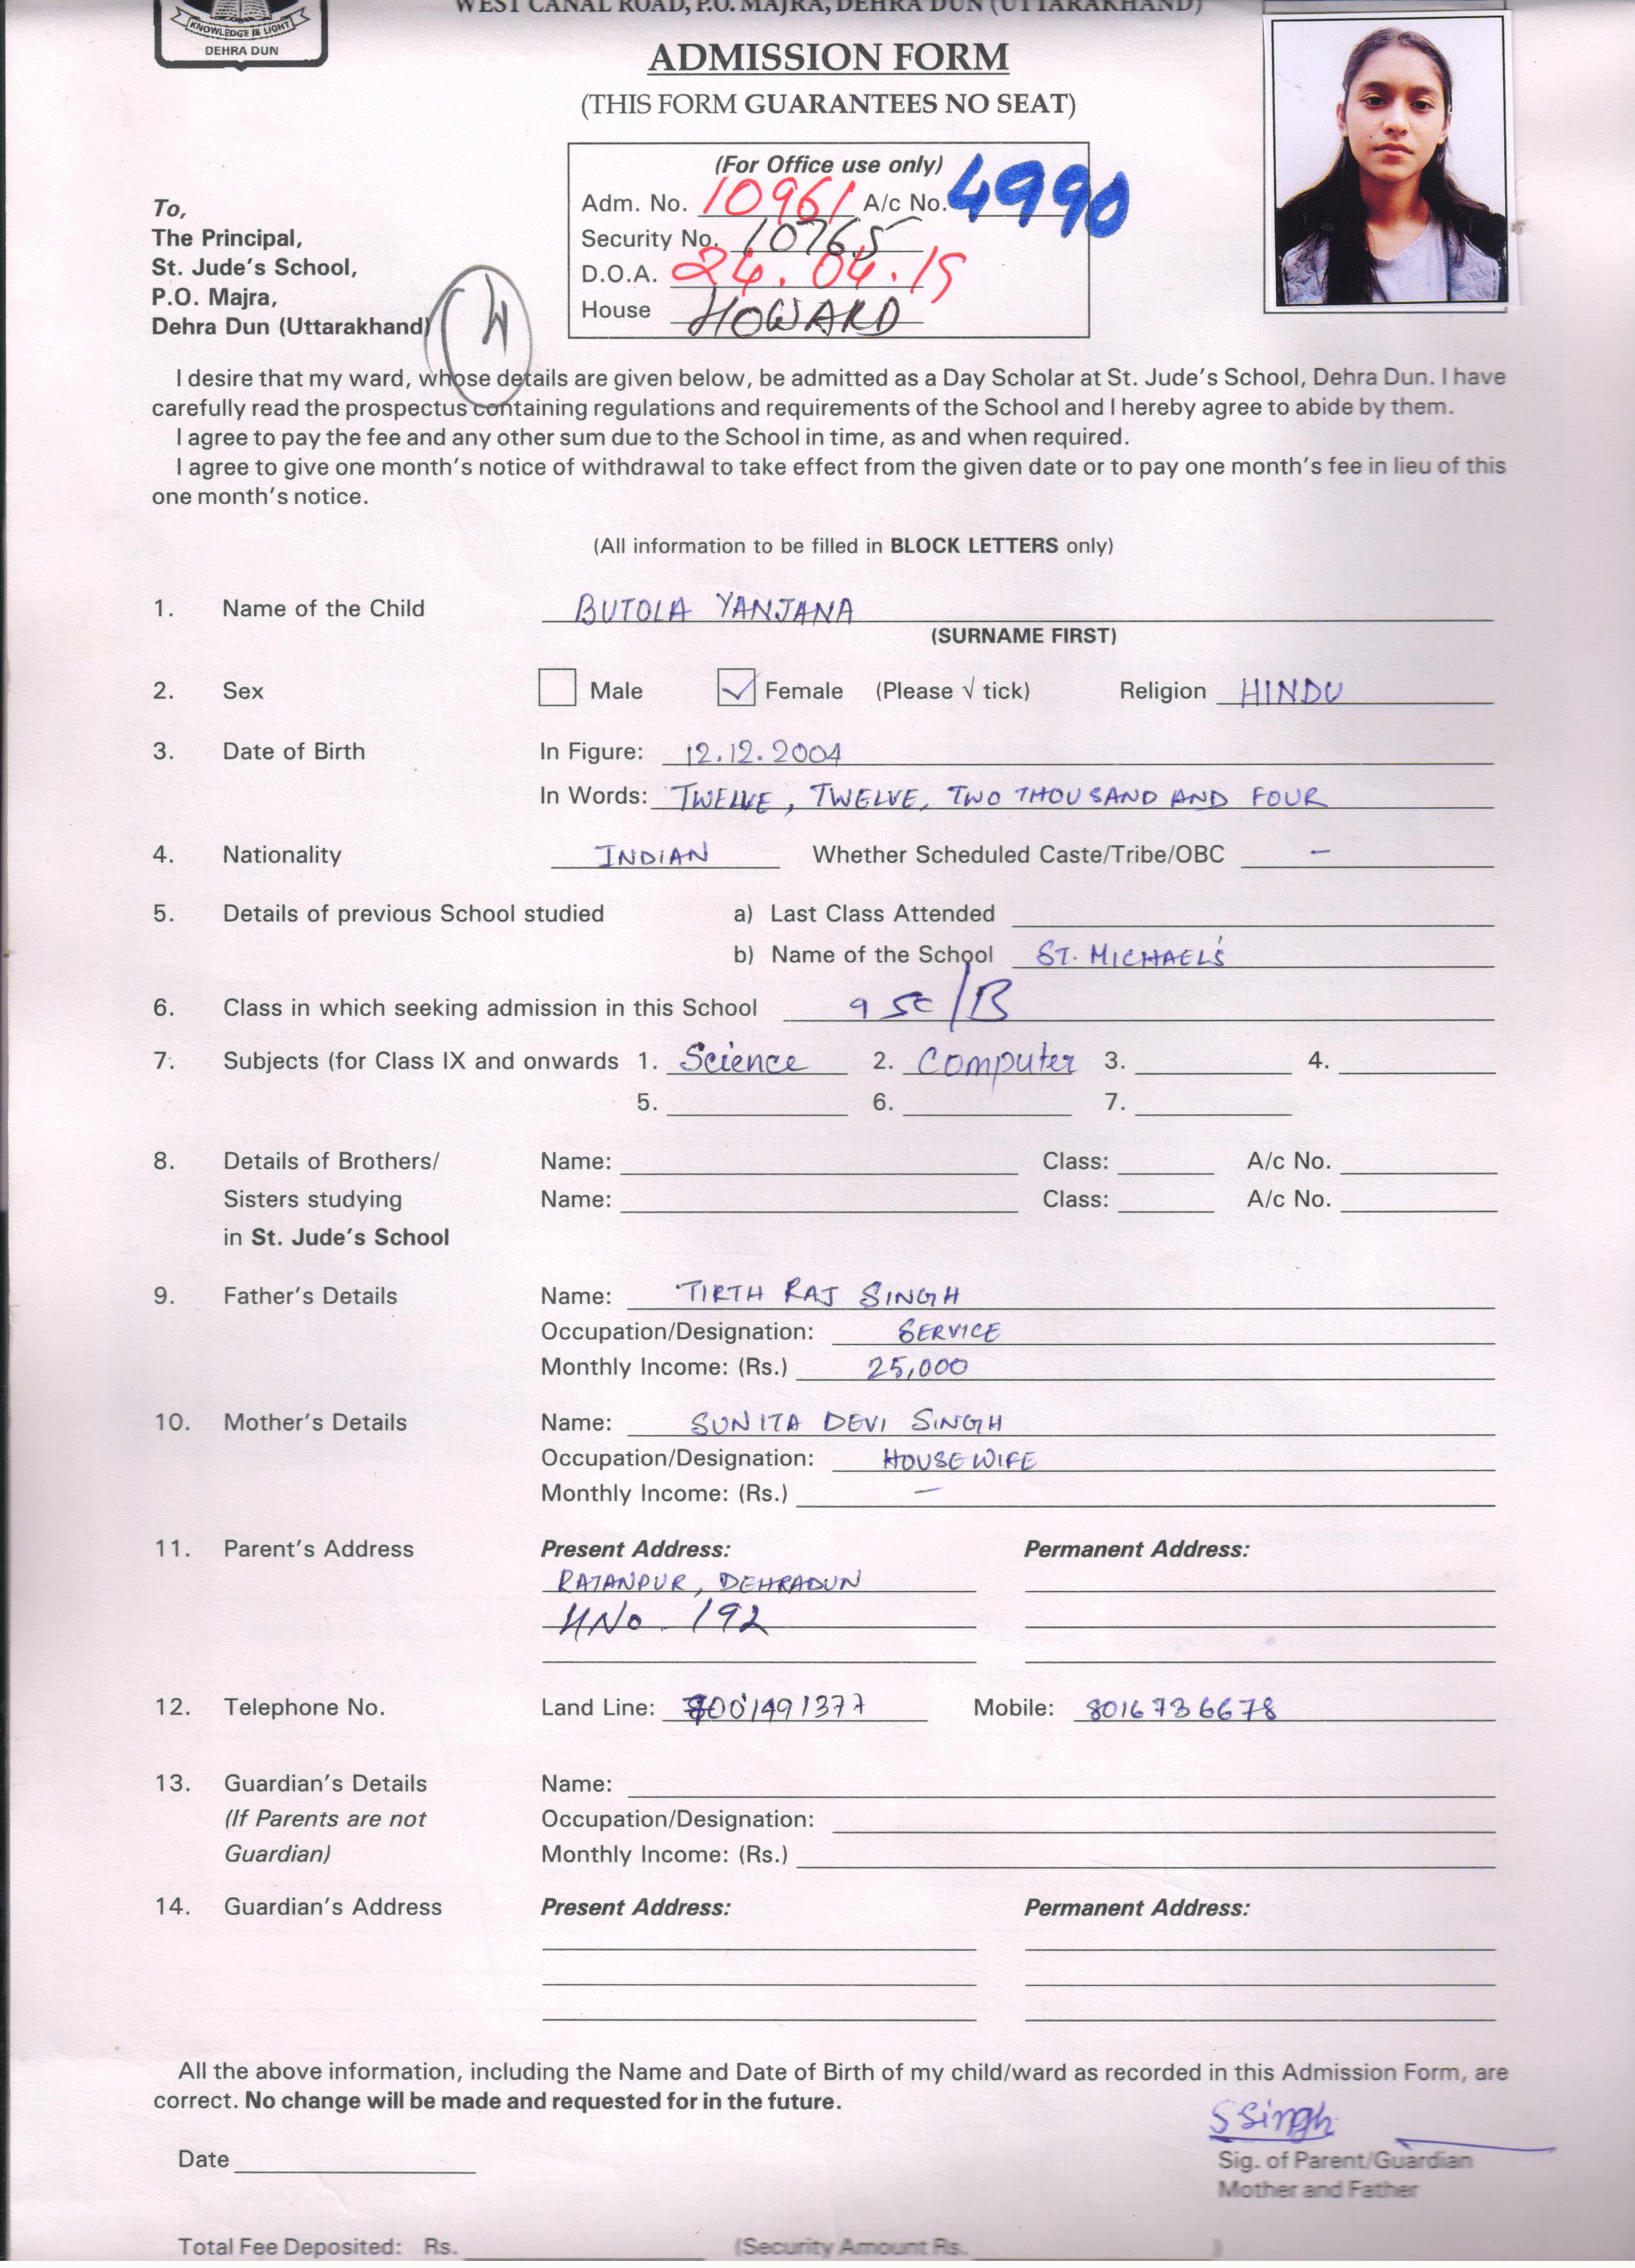 WEST CANAL ROAD, P.O. MAJRA, DEHRA DUN (UTTARAKHAND)
KNOWLEDGE IS LIGHT
DEHRA DUN
ADMISSION FORM
(THIS FORM GUARANTEES NO SEAT)
(For Office use only)
Adm. No. 10961 A/c No. 4990
Security No. 10765
D.O.A. 24.04.19
House HOWARD
To,
The Principal,
St. Jude's School,
P.O. Majra,
Dehra Dun (Uttarakhand)
I desire that my ward, whose details are given below, be admitted as a Day Scholar at St. Jude's School, Dehra Dun. I have
carefully read the prospectus containing regulations and requirements of the School and I hereby agree to abide by them.
I agree to pay the fee and any other sum due to the School in time, as and when required.
I agree to give one month's notice of withdrawal to take effect from the given date or to pay one month's fee in lieu of this
one month's notice.
(All information to be filled in BLOCK LETTERS only)
1. Name of the Child BUTOLA YANJANA
(SURNAME FIRST)
2. Sex Male Female (Please √ tick) Religion HINDU
3. Date of Birth In Figure: 12.12.2004
In Words: TWELVE, TWELVE, TWO THOUSAND AND FOUR
4. Nationality INDIAN Whether Scheduled Caste/Tribe/OBC –
5. Details of previous School studied a) Last Class Attended
b) Name of the School ST. MICHAEL'S
6. Class in which seeking admission in this School 9 SC/B
7. Subjects (for Class IX and onwards 1. Science 2. Computer 3. 4.
5. 6. 7.
8. Details of Brothers/ Name: Class: A/c No.
Sisters studying Name: Class: A/c No.
in St. Jude's School
9. Father's Details Name: TIRTH RAJ SINGH
Occupation/Designation: SERVICE
Monthly Income: (Rs.) 25,000
10. Mother's Details Name: SUNITA DEVI SINGH
Occupation/Designation: HOUSEWIFE
Monthly Income: (Rs.) –
11. Parent's Address Present Address: Permanent Address:
RAJANPUR, DEHRADUN
HNo. 192
12. Telephone No. Land Line: Mobile: 8016736678
13. Guardian's Details Name:
(If Parents are not Occupation/Designation:
Guardian) Monthly Income: (Rs.)
14. Guardian's Address Present Address: Permanent Address:
All the above information, including the Name and Date of Birth of my child/ward as recorded in this Admission Form, are
correct. No change will be made and requested for in the future.
SSingh
Date
Sig. of Parent/Guardian
Mother and Father
Total Fee Deposited: Rs. (Security Amount Rs. )